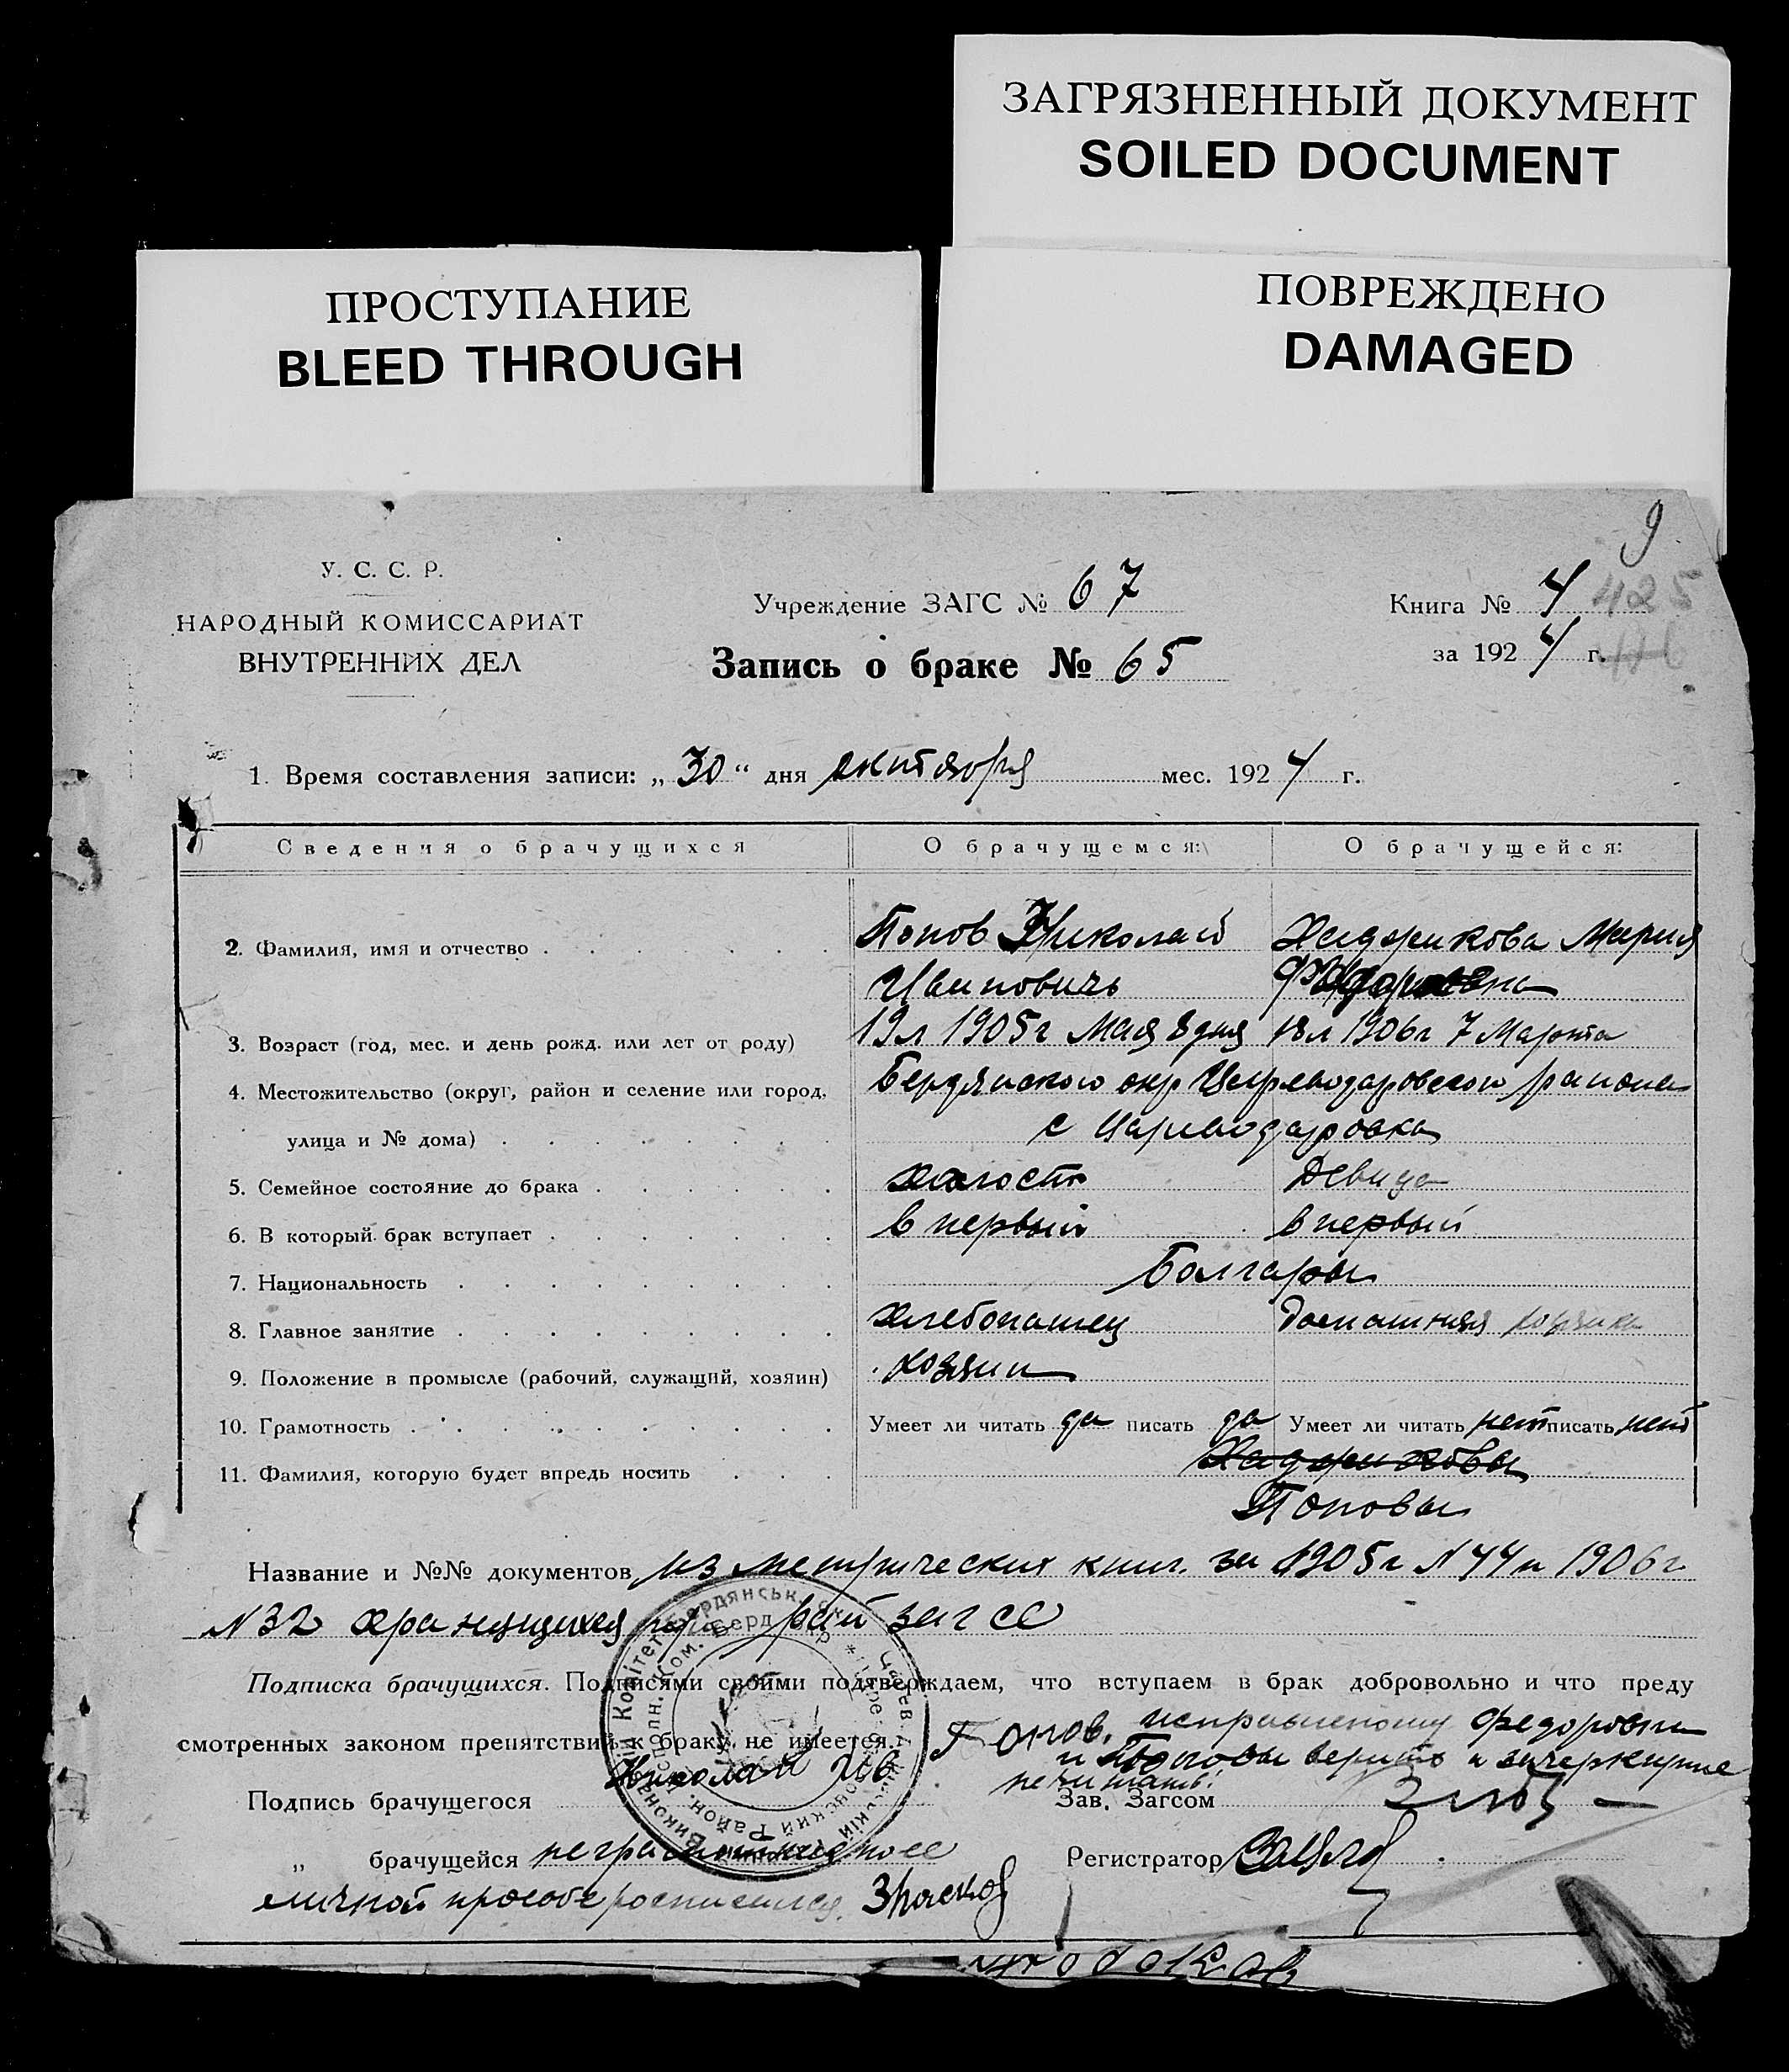 ЗАГРЯЗНЕННЫЙ ДОКУМЕНТ
SOILED DOCUMENT
ПРОСТУПАНИЕ
BLEED THROUGH
ПОВРЕЖДЕНО
DAMAGED
9
У. С. С. Р.
НАРОДНЫЙ КОМИССАРИАТ
ВНУТРЕННИХ ДЕЛ
Учреждение ЗАГС № 67
Запись о браке № 65
Книга № 4 425
за 1924 г.
1. Время составления записи: „30“ дня октября мес. 1924 г.
Сведения о брачущихся О брачущемся: О брачущейся:
2. Фамилия, имя и отчество Попов Николай Хаджикова Мария
Ивановичь Федоровна
3. Возраст (год, мес. и день рожд. или лет от роду) 19л 1905г Мая 8 дня 18л 1906г 7 Марта
4. Местожительство (округ, район и селение или город, Бердянского окр Цареводаровского района
улица и № дома) с Цареводаровка
5. Семейное состояние до брака холост Девица
6. В который брак вступает в первый в первый
7. Национальность Болгары
8. Главное занятие хлебопашец домашняя хозяйка
9. Положение в промысле (рабочий, служащий, хозяин) хозяин
10. Грамотность Умеет ли читать да писать да Умеет ли читать нет писать нет
11. Фамилия, которую будет впредь носить Хаджиковы
Поповы
Название и №№ документов из метрических книг. за 1905г N 44 и 1906г
N 32 хранящихся при рай загсе
Подписка брачущихся. Подписями своими подтверждаем, что вступаем в брак добровольно и что преду
смотренных законом препятствий к браку не имеется. Попов. исправленному Федоровна
и Поповы верить и зачеркнутое
не читать!
Подпись брачущегося Николай Ив Зав. Загсом
„ брачущейся неграмотная по ее Регистратор
личной просьбе росписался.